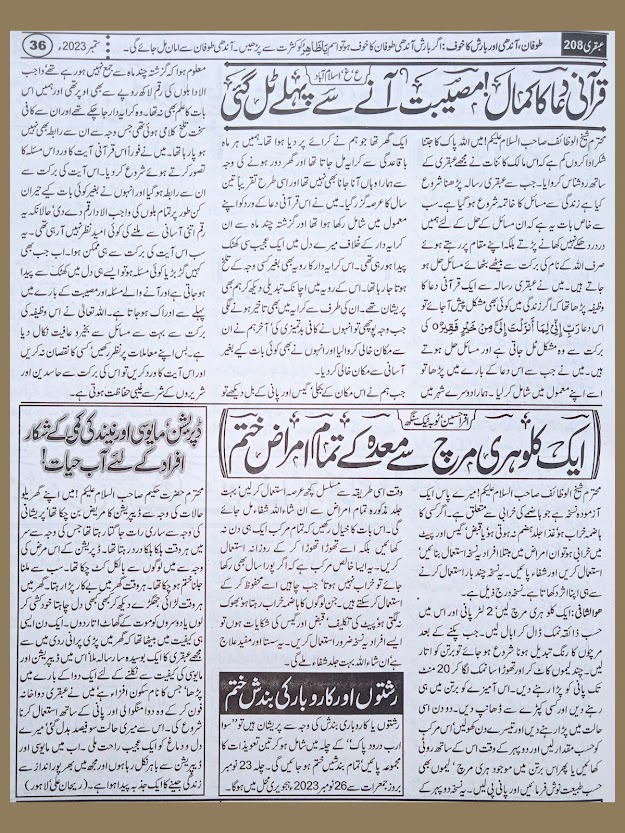 عبقری 208
طوفان، آندھی اور بارش کا خوف: اگر بارش آندھی طوفان کا خوف ہو تو اسم یَاظَاہِرُ کو کثرت سے پڑھیں۔ آندھی طوفان سے امان مل جائے گی۔
ستمبر 2023ء
36
قرآنی دعا کا کمال! مصیبت آنے سے پہلے ٹل گئی
(ع،غ، اسلام آباد)
محترم شیخ الوظائف صاحب السلام علیکم! میں اللہ پاک کا جتنا
شکر ادا کروں کم ہے کہ اس مالک کائنات نے مجھے عبقری کے
ساتھ روشناس کروایا۔ جب سے عبقری رسالہ پڑھنا شروع
کیا ہے زندگی سے مسائل کا خاتمہ شروع ہو گیا ہے۔ سب
سے خاص بات یہ ہے کہ ان مسائل کے حل کے لئے ہمیں
دردر دھکے نہیں کھانے پڑتے بلکہ اپنے مقام پر رہتے ہوئے
صرف اللہ کے نام کی برکت سے بیٹھے بٹھائے مسائل حل ہو
جاتے ہیں۔ میں نے عبقری رسالہ سے ایک قرآنی دعا کا
وظیفہ پڑھا تھا کہ اگر زندگی میں کوئی بھی مشکل پیش آ جائے تو
اس دعا رَبِّ اِنِّیْ لِمَا اَنْزَلْتَ اِلَیَّ مِنْ خَیْرٍ فَقِیْرٌ کی
برکت سے وہ مشکل ٹل جاتی ہے اور مسائل حل ہوتے
ہیں۔ میں نے جب سے اس دعا کے بارے میں پڑھا تو
اسے اپنے معمول میں شامل کر لیا۔ ہمارا دوسرے شہر میں
ایک گھر تھا جو ہم نے کرائے پر دیا ہوا تھا۔ ہمیں ہر ماہ
باقاعدگی سے کرایہ مل جاتا تھا اور گھر دور ہونے کی وجہ
سے ہمارا وہاں آنا جانا بھی نہیں تھا اور اسی طرح تقریباً تین
سال کا عرصہ گزر گیا۔ میں نے اس قرآنی دعا کے ورد کو اپنے
معمول میں شامل رکھا ہوا تھا اور گزشتہ چند ماہ سے ان
کرایہ دار کے خلاف میرے دل میں ایک عجیب سی کھٹک
پیدا ہو رہی تھی۔ اس کرایہ دار کا رویہ بھی بغیر کسی وجہ کے تلخ
ہوتا جا رہا تھا۔ اس کے رویہ میں اچانک تبدیلی دیکھ کر ہم بھی
پریشان تھے۔ ان کی طرف سے کرایہ میں بھی تاخیر ہونے لگی
جب وجہ پوچھی تو انہوں نے کافی بدتمیزی کی' آخر ہم نے ان
سے مکان خالی کروا لیا اور انہوں نے بھی کوئی بات کئے بغیر
آسانی سے مکان خالی کر دیا۔
جب ہم نے اس مکان کے بجلی' گیس اور پانی کے بل دیکھے تو
معلوم ہوا کہ گزشتہ چند ماہ سے جمع نہیں ہو رہے تھے' واجب
الادا بلوں کی رقم لاکھ روپے سے بھی اوپر تھی اور ہمیں اس
بات کا علم بھی نہ تھا۔ وہ کرایہ دار جا چکے تھے اور ان سے کافی
سخت تلخ کلامی ہوئی تھی جس وجہ سے ان سے رابطہ بھی نہیں
ہو پا رہا تھا۔ میں نے فوراً اس قرآنی آیت کا ورد اس مسئلہ کا
تصور کرتے ہوئے شروع کر دیا۔ اس آیت کی برکت سے
ان سے رابطہ ہو گیا اور انہوں نے بغیر کوئی بات کیے حیران
کن طور پر تمام بلوں کی واجب الادا رقم دے دی' حالانکہ یہ
رقم اتنی آسانی سے ملنے کی کوئی امید نظر نہیں آ رہی تھی۔ یہ
سب اس آیت کی برکت سے ہی ممکن ہوا۔ اب جب بھی
کہیں گڑبڑ یا کوئی مسئلہ ہو تو ایسے ہی دل میں کھٹک سے پیدا
ہو جاتی ہے اور آنے والے مسئلہ اور مصیبت کے بارے میں
پہلے سے ادراک ہو جاتا ہے۔ اللہ تعالیٰ نے اس وظیفہ کی
برکت سے بہت سے مسائل سے بخیر و عافیت نکال دیا
ہے۔ بس اپنے معاملات پر نظر رکھیں' کسی کا نقصان نہ کریں
اور اس آیت کا ورد کریں تو اس کی برکت سے حاسدین اور
شریروں کے شر سے غیبی حفاظت ہوتی ہے۔
ایک کلو ہری مرچ سے معدہ کے تمام امراض ختم
(اقراء حسین، ٹوبہ ٹیک سنگھ)
محترم شیخ الوظائف صاحب السلام علیکم! میرے پاس ایک
آزمودہ نسخہ ہے جو ہاضمے کی خرابی سے متعلق ہے۔ اگر کسی کا
ہاضمہ خراب ہو' غذا جلد ہضم نہ ہوتی ہو' قبض' گیس اور پیٹ
میں خرابی ہو تو ان امراض میں مبتلا افراد یہ نسخہ بنائیں'
استعمال کریں اور شفاء پائیں۔ یہ نسخہ چند بار استعمال کرنے
سے ہی اپنا اثر دکھاتا ہے۔ نسخہ درج ذیل ہے۔
ھوالشافی: ایک کلو ہری مرچ لیں' 2 لٹر پانی اور اس میں
حسب ذائقہ نمک ڈال کر ابال لیں۔ جب پکنے کے بعد
مرچوں کا رنگ تبدیل ہونا شروع ہو جائے تو برتن کو اتار
لیں۔ چند لیموں کاٹ کر اور تھوڑا سا نمک لگا کر 20 منٹ
تک پانی کو پڑا رہنے دیں۔ اس آمیزے کو برتن میں ہی
رہنے دیں اور کسی کپڑے سے ڈھانپ دیں۔ دو دن اسی
حالت میں پڑا رہنے دیں اور تیسرے دن کھولیں' اس مرکب
کو حسب مقدار لیں اور دوپہر کے وقت اس کے ساتھ روٹی
کھائیں یا پھر اس برتن میں موجود ہری مرچ' لیموں بھی
حسب طبیعت نوش فرمائیں اور پانی پی لیں۔ یہ نسخہ دوپہر کے
وقت اسی طریقہ سے مسلسل کچھ عرصہ استعمال کریں' بہت
جلد مذکورہ تمام امراض سے ان شاء اللہ شفاء مل جائے
گی۔ اس بات کا خیال رکھیں کہ تمام مرکب ایک ہی دن نہ
کھائیں بلکہ اسے تھوڑا تھوڑا کر کے روزانہ استعمال
کریں۔ یہ ایسا خالص مرکب ہے کہ اگر پورا سال بھی رکھا
جائے تو خراب نہیں ہوتا' جب چاہیں اسے محفوظ کر کے
استعمال کر سکتے ہیں۔ جن لوگوں کا ہاضمہ خراب رہتا ہو' بھوک
نہ لگتی ہو' پیٹ کی تکلیف' قبض اور گیس کی شکایات ہوں تو
ایسے افراد یہ نسخہ ضرور استعمال کریں۔ یہ سستا اور مفید علاج
ہے ان شاء اللہ بہت جلد شفاء ملے گی۔
رشتوں اور کاروبار کی بندش ختم
رشتوں یا کاروباری بندش کی وجہ سے پریشان ہیں تو "سوا
ارب درود پاک" کے چلہ میں شامل ہو کر تین تعویذات کا
مجموعہ پائیں' تمام بندشیں ختم ہو جائیں گی۔ چلہ 23 نومبر
بروز جمعرات سے 26 نومبر 2023ء ہجویری محل میں ہوگا۔
ڈپریشن' مایوسی اور نیند کی کمی کے شکار
افراد کے لئے آب حیات!
محترم حضرت حکیم صاحب السلام علیکم! میں اپنے گھریلو
حالات کی وجہ سے ڈیپریشن کا مریض بن چکا تھا' پریشانی
کی وجہ سے ساری رات جاگتا رہتا تھا جس کی وجہ سے سر
میں ہر وقت ہلکا ہلکا درد رہتا تھا۔ ڈپریشن کے اس مرض کی
وجہ سے میں لوگوں سے بالکل کٹ چکا تھا۔ سب سے ملنا
جلنا ختم ہو چکا تھا۔ ہر وقت گھر میں بے کار پڑا رہتا تھا۔ گھر میں
ہر وقت لڑائی جھگڑے دیکھ کر کبھی بھی دل چاہتا خودکشی کر
لوں یا دوسروں کو موت کے گھاٹ اتار دوں۔ ایک دن ایسی
ہی کیفیت میں بیٹھا تھا کہ گھر میں پڑی پرانی ردی میں سے
مجھے عبقری کا ایک بوسیدہ سا رسالہ ملا' اس میں ڈیپریشن اور
مایوسی کی کیفیت سے نکلنے کے لئے ایک دوا کے بارے میں
پڑھا' جس کا نام سکون افزاء ہے' میں نے عبقری دواخانہ
فون کر کے وہ دوا منگوائی اور پانی کے ساتھ استعمال کرنا
شروع کی۔ اس سے میری حالت سو فیصد بدل گئی' میرے
دل و دماغ کو ایک عجیب راحت ملی۔ اب میں مایوسی اور
ڈیپریشن سے باہر نکل رہا ہوں اور مجھ میں بھرپور انداز سے
زندگی جینے کا ایک جذبہ پیدا ہوا ہے۔ (ریحان علی' لاہور)